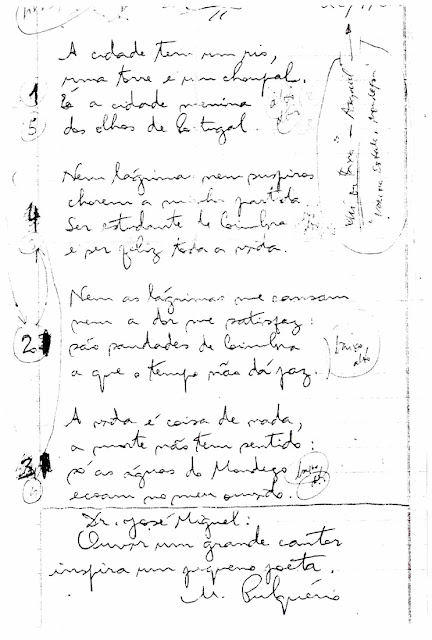 A cidade tem um rio,
uma torre e um choupal.
É a cidade menina
dos olhos de Portugal.
1
5
Nem lágrimas nem suspiros
chorem a minha partida.
Ser estudante de Coimbra
é ser feliz toda a vida.
4
Nem as lágrimas me cansam
nem a dor me satisfaz:
são saudades de Coimbra
a que o tempo não dá paz.
2
A vida é coisa de nada,
a morte não tem sentido:
só as águas do Mondego
ecoam no meu ouvido.
3
Dr. José Miguel:
Ouvir um grande cantor
inspira um pequeno poeta.
M. Pulquério